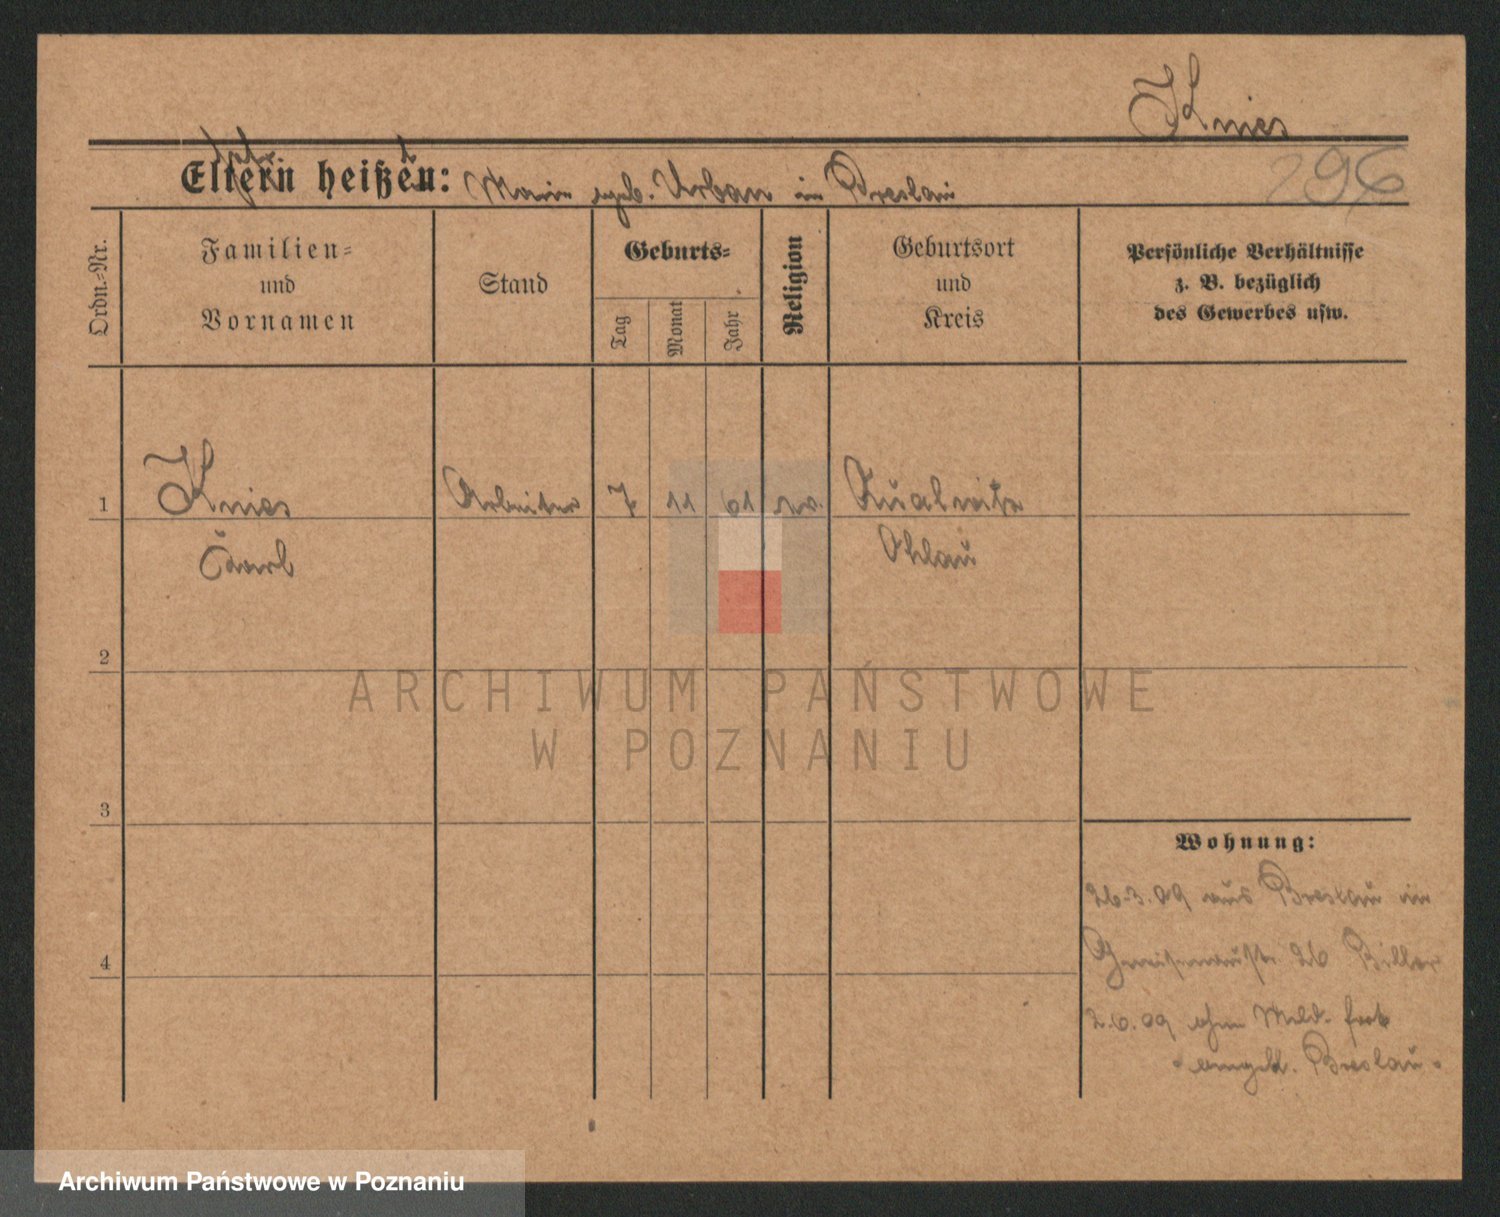 Knies
296
Eltern heißen: Marie geb. Urban in Breslau
Ordn.-Nr.
Familien-
und
Vornamen
Stand
Geburts-
Tag
Monat
Jahr
Religion
Geburtsort
und
Kreis
Persönliche Verhältnisse
z. B. bezüglich
des Gewerbes usw.
1
Knies
Arbeiter
7
11
61
ev.
Karl
Ohlau
2
3
4
Wohnung:
26.3.09 aus Breslau in
Gneisenaustr. 26
2.6.09 ohne Meld. fort
angebl. Breslau.
ARCHIWUM PAŃSTWOWE
W POZNANIU
Archiwum Państwowe w Poznaniu